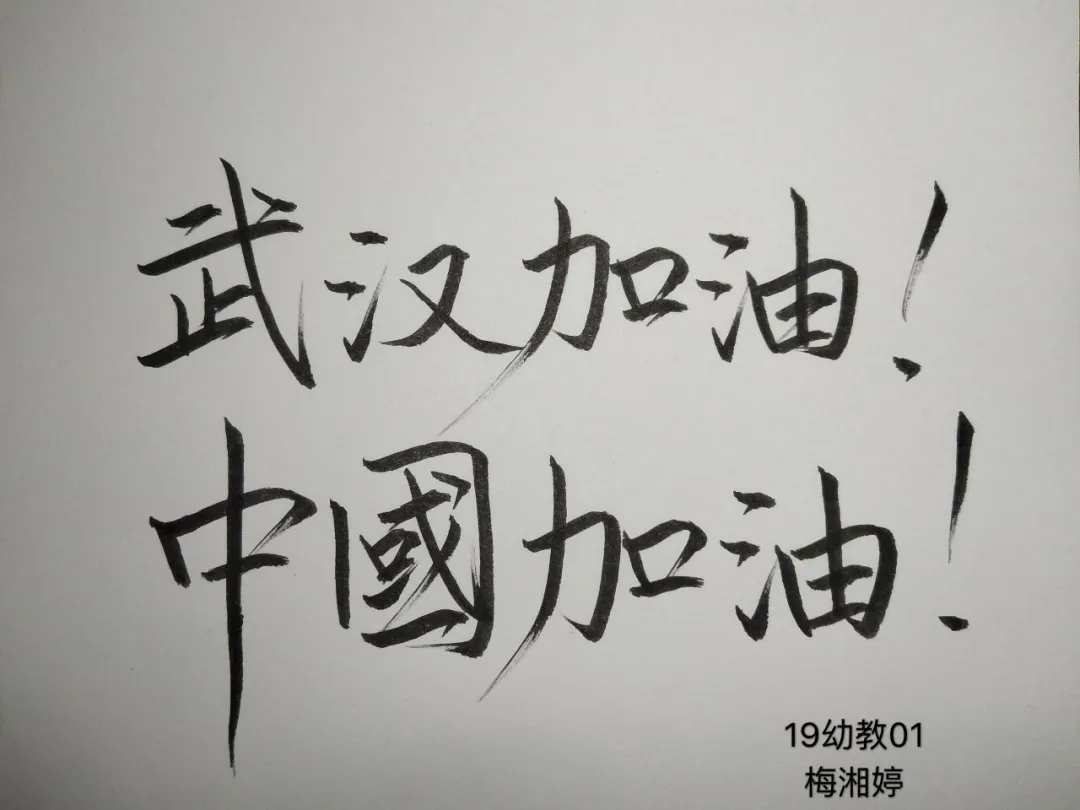 武汉加油!
中國加油!
19幼教01
梅湘婷